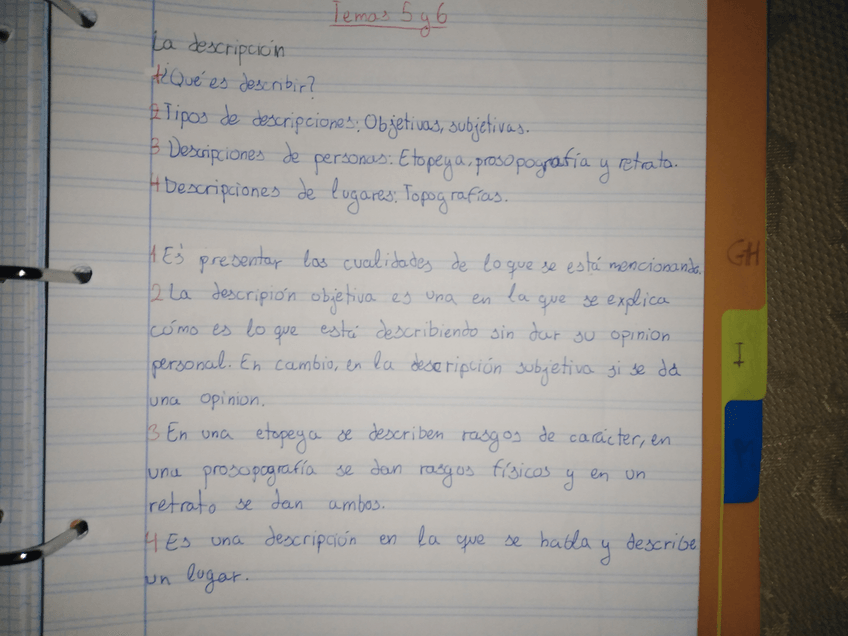 Temas 5 y 6
La descripción
1 ¿Qué es describir?
2 Tipos de descripciones: Objetivas, subjetivas.
3 Descripciones de personas: Etopeya, prosopografía y retrato.
4 Descripciones de lugares: Topografías.
1 Es presentar las cualidades de lo que se está mencionando.
2 La descripión objetiva es una en la que se explica
cómo es lo que está describiendo sin dar su opinion
personal. En cambio, en la descripción subjetiva si se da
una opinion.
3 En una etopeya se describen rasgos de carácter, en
una prosopografía se dan rasgos físicos y en un
retrato se dan ambos.
4 Es una descripción en la que se habla y describe
un lugar.
GH
I